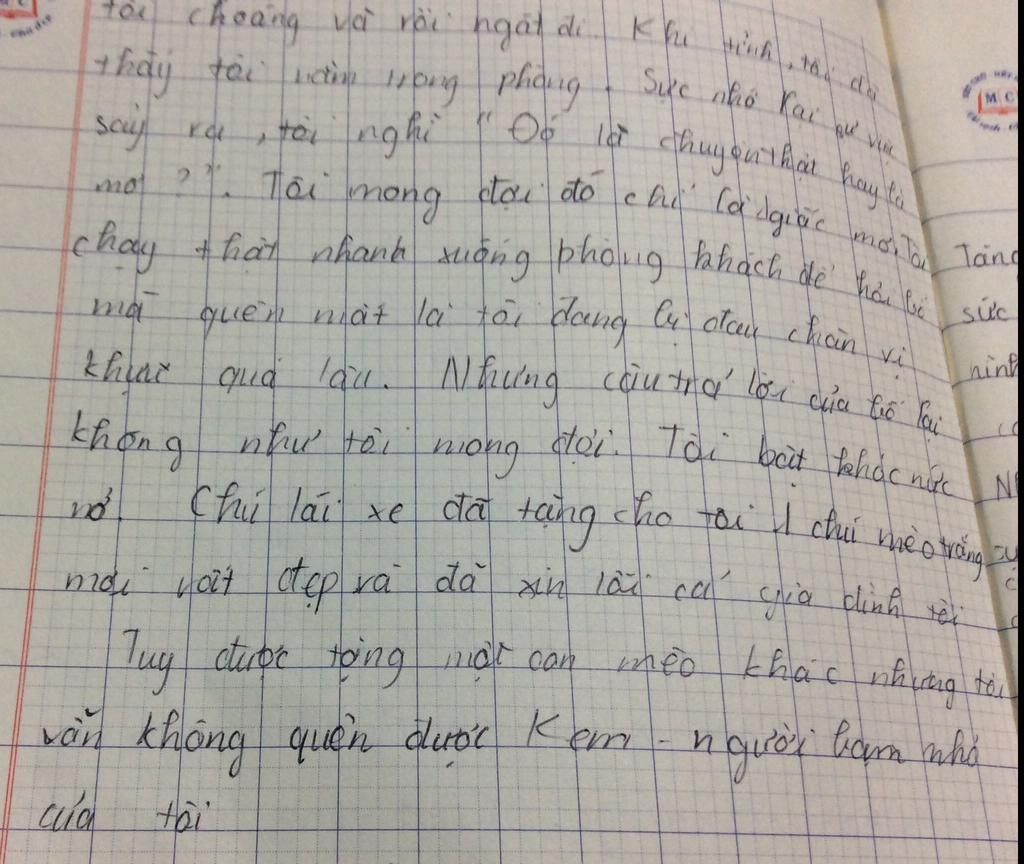 tôi choáng và rồi ngất đi. Khi tỉnh, tôi đã
thấy tôi nằm trong phòng. Sực nhớ lại sự việc
sảy ra, tôi nghĩ "Đó là chuyện thật hay là
mơ??". Tôi mong đợi đó chỉ là giấc mơ. Tôi
chạy thật nhanh xuống phòng khách để hỏi bố
mà quên mất là tôi đang bị đau chân vì
khuỵ quá lâu. Nhưng câu trả lời của bố lại
không như tôi mong đợi. Tôi bật khóc nức
nở. Chú lái xe đã tặng cho tôi 1 chú mèo trắng
mới rất đẹp và đã xin lỗi cả gia đình tôi
Tuy được tặng một con mèo khác nhưng tôi
vẫn không quên được Kem - người bạm nhỏ
của tôi
M C
sức